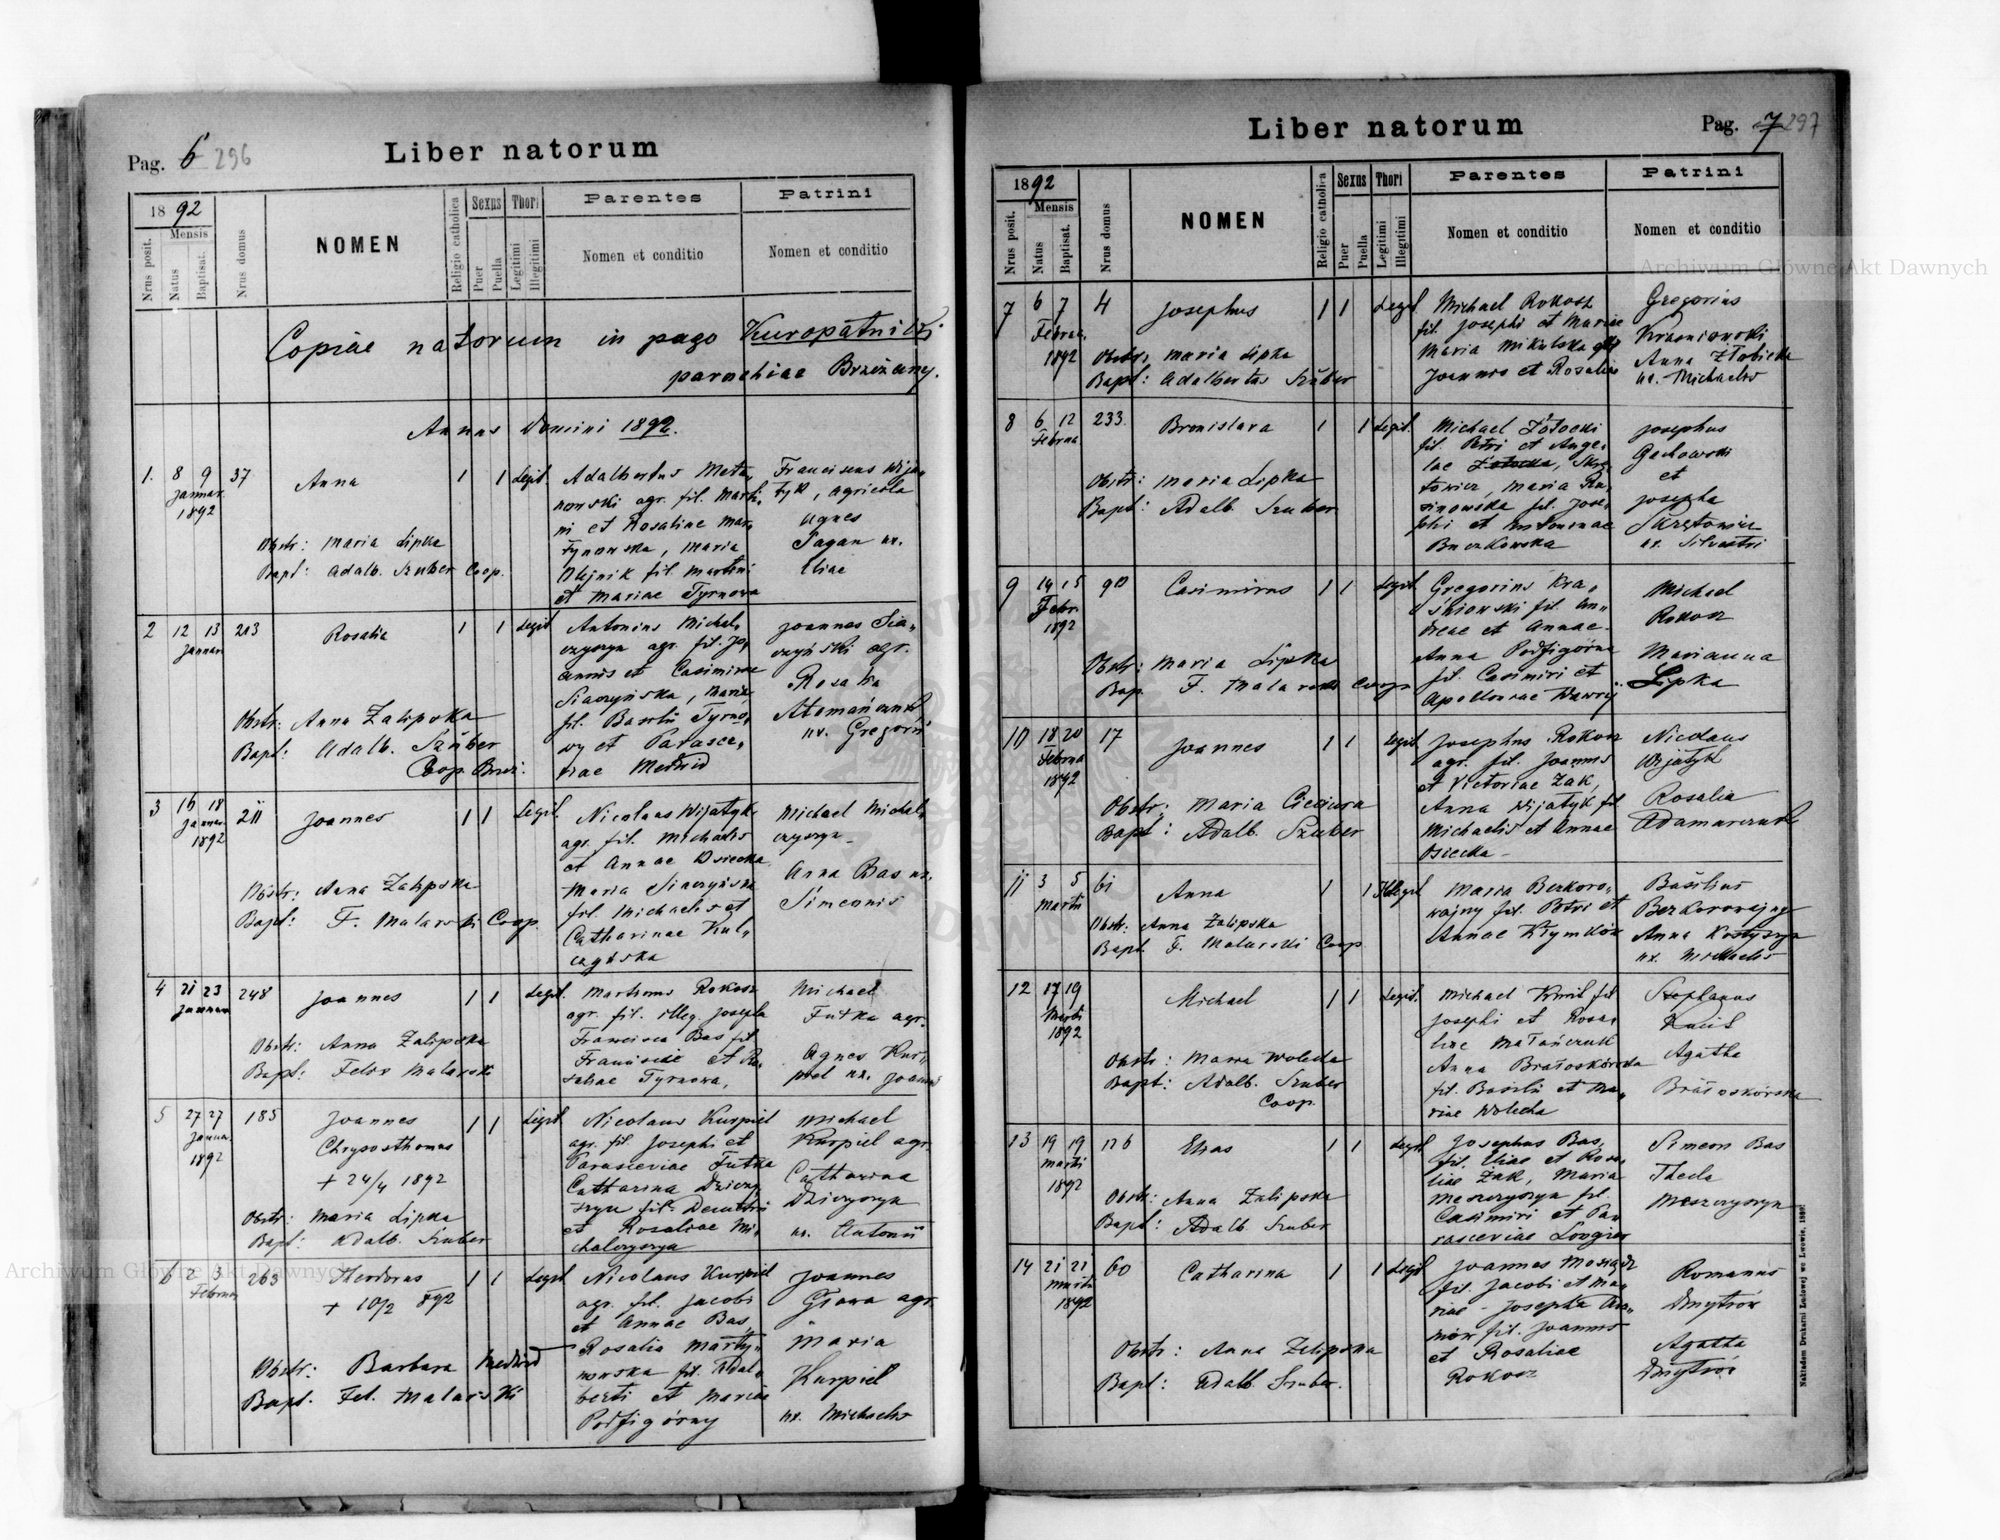 Pag. 6 296
Liber natorum
1892
Mensis
Nrus posit.
Natus
Baptisat.
Nrus domus
NOMEN
Religio catholica
Sexus
Puer
Puella
Thori
Legitimi
Illegitimi
Parentes
Nomen et conditio
Patrini
Nomen et conditio
Copiae natorum in pago Kuropatniki
parochiae Brzeżany.
Annus Domini 1892.
1. 8 9 37
Januar.
1892
Anna
1 1 Legit.
Obstr: Maria Lipka
Bapt: Adalb. Szuber Coop.
Adalbertus
agr. fil. Marti,
ni et Rosaliae Mar,
tynowska, Maria
Olejnik fil. Martini
et Mariae Tyrnowa
Franciscus Wija,
tyk, agricola
Agnes
Pagan ux.
Eliae
2 12 13 213
Januar
Rosalia
1 1 Legit
Obstr: Anna Zalipska
Bapt: Adalb. Szuber
Coop. Brzeż.
Antonius Michal,
czyszyn agr. fil. Jo,
annis et Casimirae
Siaczyńska, Maria
fil. Basilii Tyrno,
wy et Parasce,
viae Medwid
Joannes Sia,
czyński agr.
Rosalia
ux. Gregorii
3 16 18 211
Januar
1892
Joannes
1 1 Legit.
Obstr: Anna Zalipska
Bapt: F. Malarski Coop.
Nicolaus Wijatyk
agr. fil. Michaelis
et Annae Osiecka
Maria Siaczyńska
fil. Michaelis et
Catharinae Kul,
Michael Michal,
czyszyn
Anna Bas ux.
Simeonis
4 21 23 248
Januar
Joannes
1 1 Legit.
Obstr: Anna Zalipska
Bapt: Felix Malarski
Martinus Rokosz
agr. fil. illeg. Josepha
Francisca Bas fil.
Francisci et Ro,
saliae Tyrnowa,
Michael
Futka agr.
Agnes Kur,
piel ux. Joannis
5 27 27 185
Janua.
1892
Joannes
Chrysosthomus
+ 24/4 1892
1 1 Legit
Obstr: Maria Lipka
Bapt: Adalb. Szuber
Nicolaus Kurpiel
agr. fil. Josephi et
Parasceviae Futka
Catharina Dziczy,
szyn fil. Demetrii
et Rosaliae Mi,
chalczyszyn
Michael
Kurpiel agr.
Catharina
Dziczyszyn
ux. Antonii
6 2 3 263
Februar
+ 10/2 892
1 1 Legit
Obstr: Barbara Medwid
Bapt. Fel. Malarski
Nicolaus Kurpiel
agr. fil. Jacobi
et Annae Bas,
Rosalia Marty,
nowska fil. Adal,
berti et Mariae
Podfigórny
Joannes
agr.
Maria
Kurpiel
ux. Michaelis
Liber natorum
Pag. 7 297
1892
Mensis
Nrus posit.
Natus
Baptisat.
Nrus domus
NOMEN
Religio catholica
Sexus
Puer
Puella
Thori
Legitimi
Illegitimi
Parentes
Nomen et conditio
Patrini
Nomen et conditio
7 6 7 4
Februa.
1892
Josephus
1 1 Legit
Obstr: Maria Lipka
Bapt: Adalbertus Szuber
Michael Rokosz
fil. Josephi et Mariae
Maria Mikulska
Joannis et Rosaliae
Gregorius
Kraśniowski
Anna
ux. Michaelis
8 6 12 233.
Februa
Bronislava
1 1 Legit.
Obstr: Maria Lipka
Bapt: Adalb. Szuber
Michael Złotocki
fil. Petri et Ange,
lae
Maria
fil. Jose,
phi et Antoninae
Buczkowska
Josephus
Gachowski
et
Josepha
ux. Silvestri
9 14 15 90
Febr.
1892
Casimirus
1 1 Legit
Obstr: Maria Lipka
Bap. F. Malarski Coop.
Gregorius Kra,
śniowski fil. An,
dreae et Annae
Anna Podfigórna
fil. Casimiri et
Apolloniae Wawryj
Michael
Rokosz
Marianna
Lipka
10 18 20 17
Februa
1892
Joannes
1 1 Legit.
Obstr: Maria Cieciura
Bapt: Adalb. Szuber
Josephus Rokosz
agr. fil. Joannis
et Victoriae Żak,
Anna Wijatyk fil.
Michaelis et Annae
Osiecka
Nicolaus
Wijatyk
Rosalia
Adamarczuk
11 3 5 61
Martii
Anna
1 1 Illegit
Obstr: Anna Zalipska
Bapt. F. Malarski Coop.
Maria Bezkoro,
wajny fil. Petri et
Annae Klymków
Basilius
Bezkorowajny
Anna Kostyszyn
ux. Michaelis
12 17 19
Martii
1892
Michael
1 1 Legit.
Obstr: Maria Wolecha
Bapt: Adalb. Szuber
Coop.
Michael Kuriś fil
Josephi et Rosa,
liae Matańczuk
Anna
fil. Basilii et Ma,
riae Wolecha
Stephanus
Kuriś
Agatha
13 19 19 126
Martii
1892
Elias
1 1 Legit
Obstr: Anna Zalipska
Bapt: Adalb. Szuber
Josephus Bas,
fil. Eliae et Rosa,
liae Żak, Maria
Meszczyszyn fil.
Casimiri et Pa,
rasceviae Longier
Simeon Bas
Thecla
Meszczyszyn
14 21 21 60
Martii
1892
Catharina
1 1 Legit
Obstr: Anna Zalipska
Bapt: Adalb. Szuber.
Joannes
fil. Jacobi et Ma,
riae - Josepha
fil. Joannis
et Rosaliae
Rokosz
Romanus
Dmytrów
Agatha
Dmytrów
Nakładem Drukarni Ludowej we Lwowie.
Archiwum Główne Akt Dawnych
Archiwum Główne Akt Dawnych